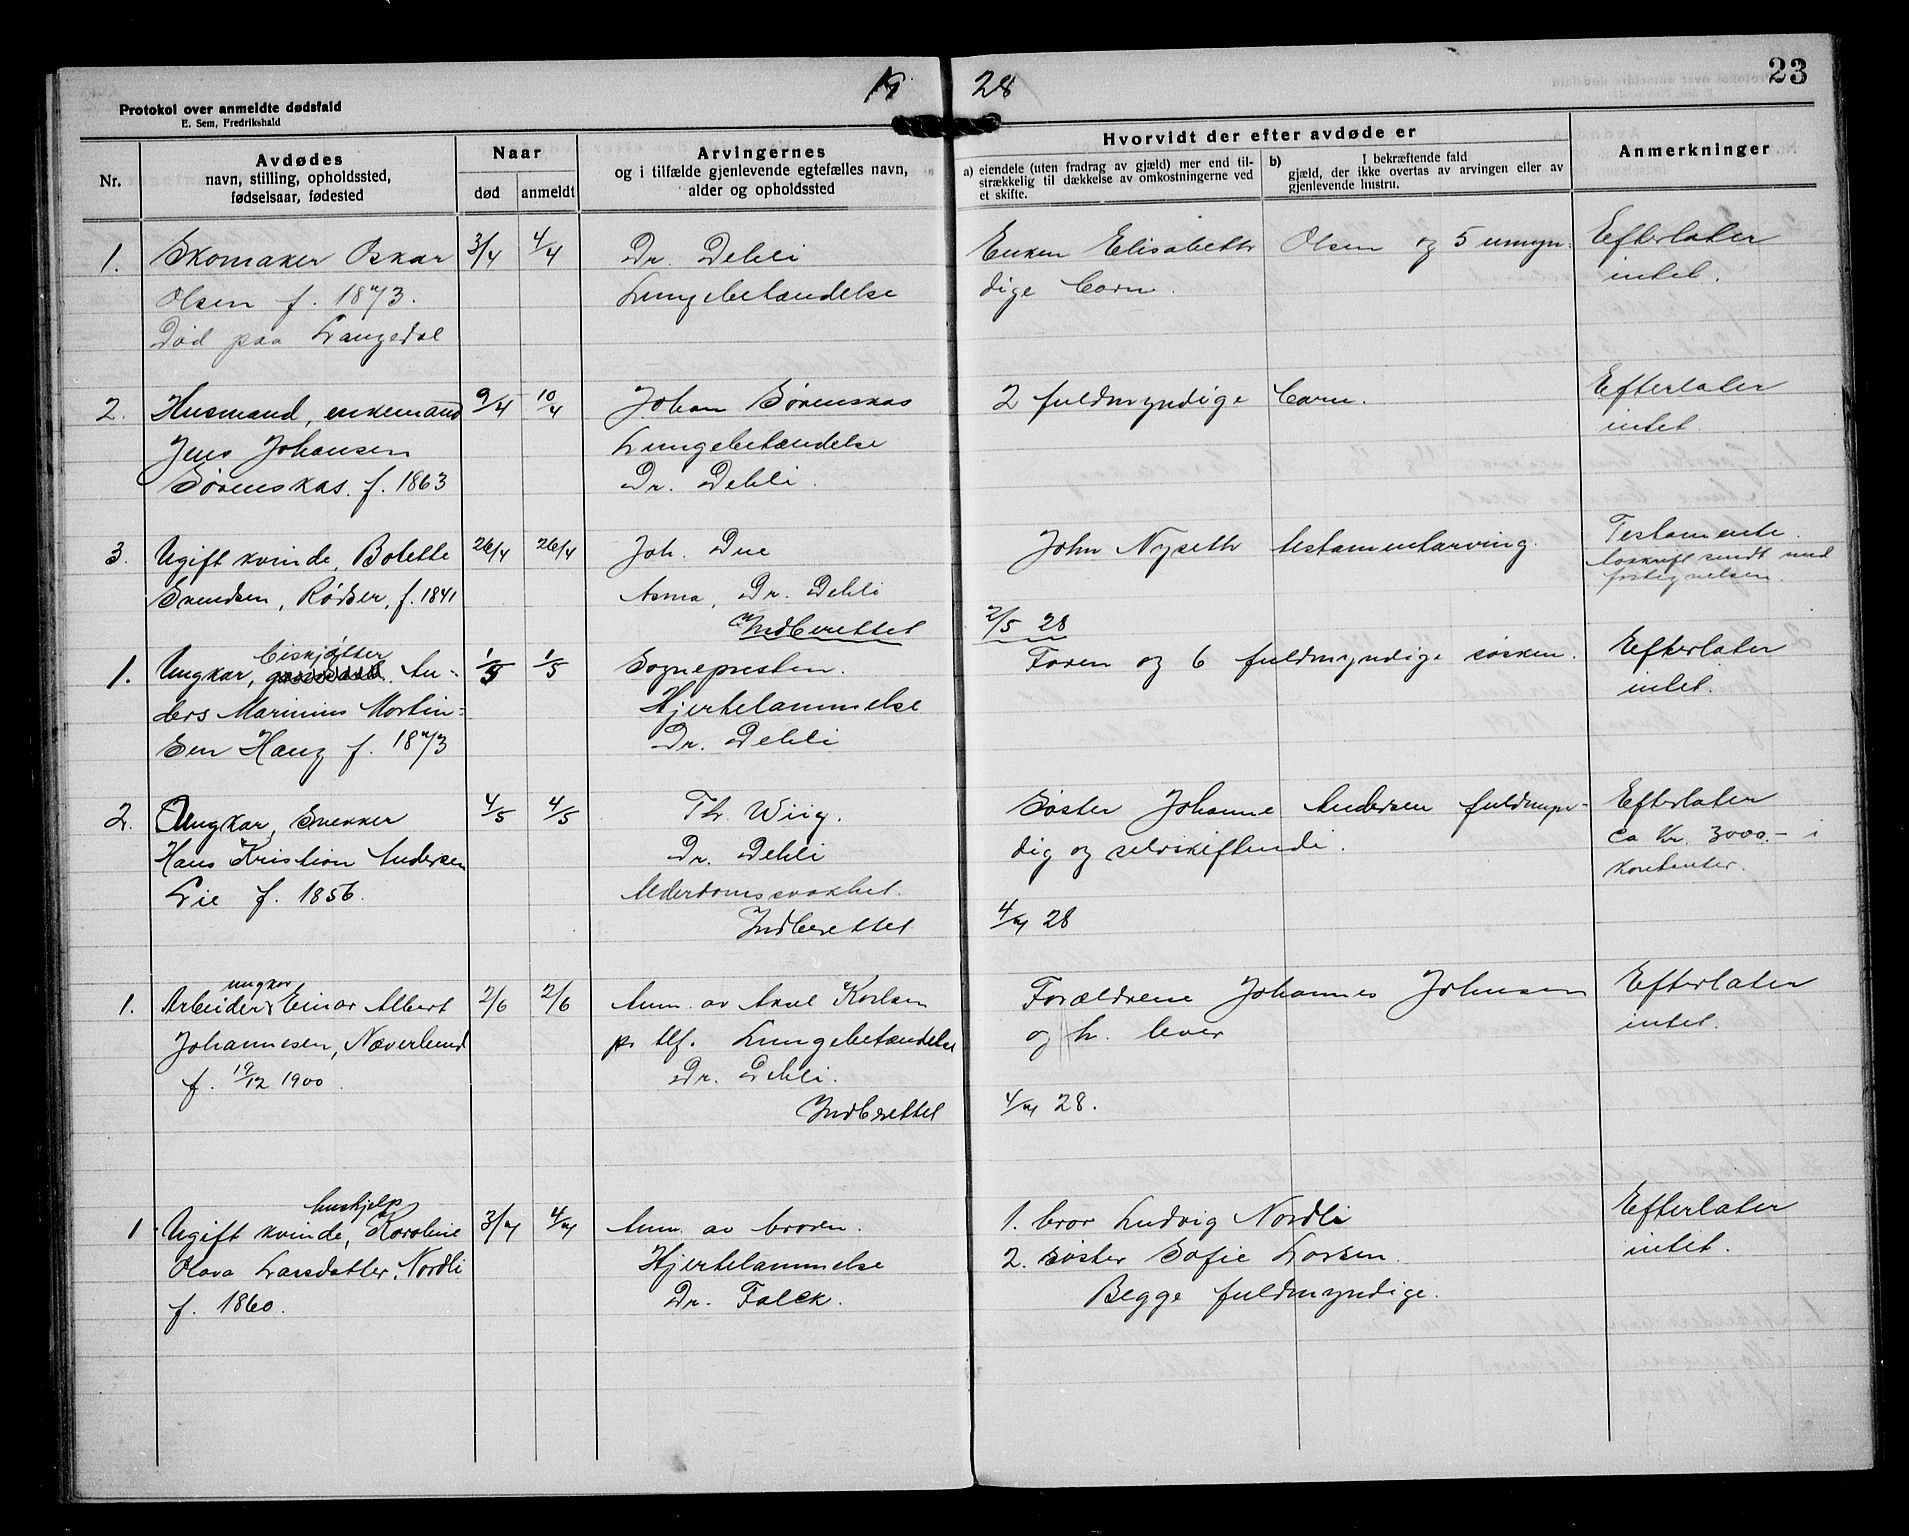 19 28
23
Protokol over anmeldte dødsfald
E. Sem, Fredrikshald
Nr.
Avdødes
navn, stilling, opholdssted,
fødselsaar, fødested
Naar
død
anmeldt
Arvingernes
og i tilfælde gjenlevende egtefælles navn,
alder og opholdssted
Hvorvidt der efter avdøde er
a) eiendele (uten fradrag av gjæld) mer end til-
strækkelig til dækkelse av omkostningerne ved
et skifte.
b) I bekræftende fald
gjæld, der ikke overtas av arvingen eller av
gjenlevende hustru.
Anmerkninger
1. Skomaker Oskar 3/4 4/4 Dr. Dehli Enken Elisabeth Olsen og 5 umyn- Efterlater
Olsen f. 1873. Lungebetændelse dige barn. intet.
Død paa Langedal
2. Husmand, enkemand 9/4 10/4 Johan Sørenskas 2 fuldmyndige barn. Efterlater
Jens Johansen Lungebetændelse intet.
Sørenskas. f. 1863 Dr. Dehli.
3. Ugift kvinde, Bolette 26/4 26/4 Joh. Due John Nyseth testamentarving. Testamente.
Svendsen, Rødser, f. 1841 Asma, Dr. Dehli avskrift sendt med
fortegnelsen.
Indberettet 2/5 28
biskjøtter
1. Ungkar, An- 1/5 1/5 Sognepresten. Faren og 6 fuldmyndige søsken. Efterlater
ders Marinius Martin- Hjertelammelse intet.
sen Haug f. 1873 Dr. Dehli
2. Ungkar, Snekker 4/5 4/5 Th. Wiig. Søster Johanne Andersen fuldmyn- Efterlater
Hans Kristian Andersen Dr. Dehli dig og selvskiftende. ca Kr. 3000.- i
Lie f. 1856. Alderdomssvakhet. kontanter.
Indberettet 4/7 28
ungkar
1. Arbeider Einar Albert 2/6 2/6 Anm. av Axel Karlsen Forældrene Johannes Johnsen Efterlater
Johannesen, Næverlund pr tlf. Lungebetændelse og h. lever intet.
f. 19/12 1900. Dr. Dehli.
Indberettet 4/7 28.
hushjelp
1. Ugift kvinde, Karoline 3/7 4/7 Anm. av broren. 1. bror Ludvig Nordli Efterlater
Olava Larsdatter, Nordli Hjertelammelse 2. søster Sofie Larsen. intet.
f. 1860. Dr. Falck. Begge fuldmyndige.